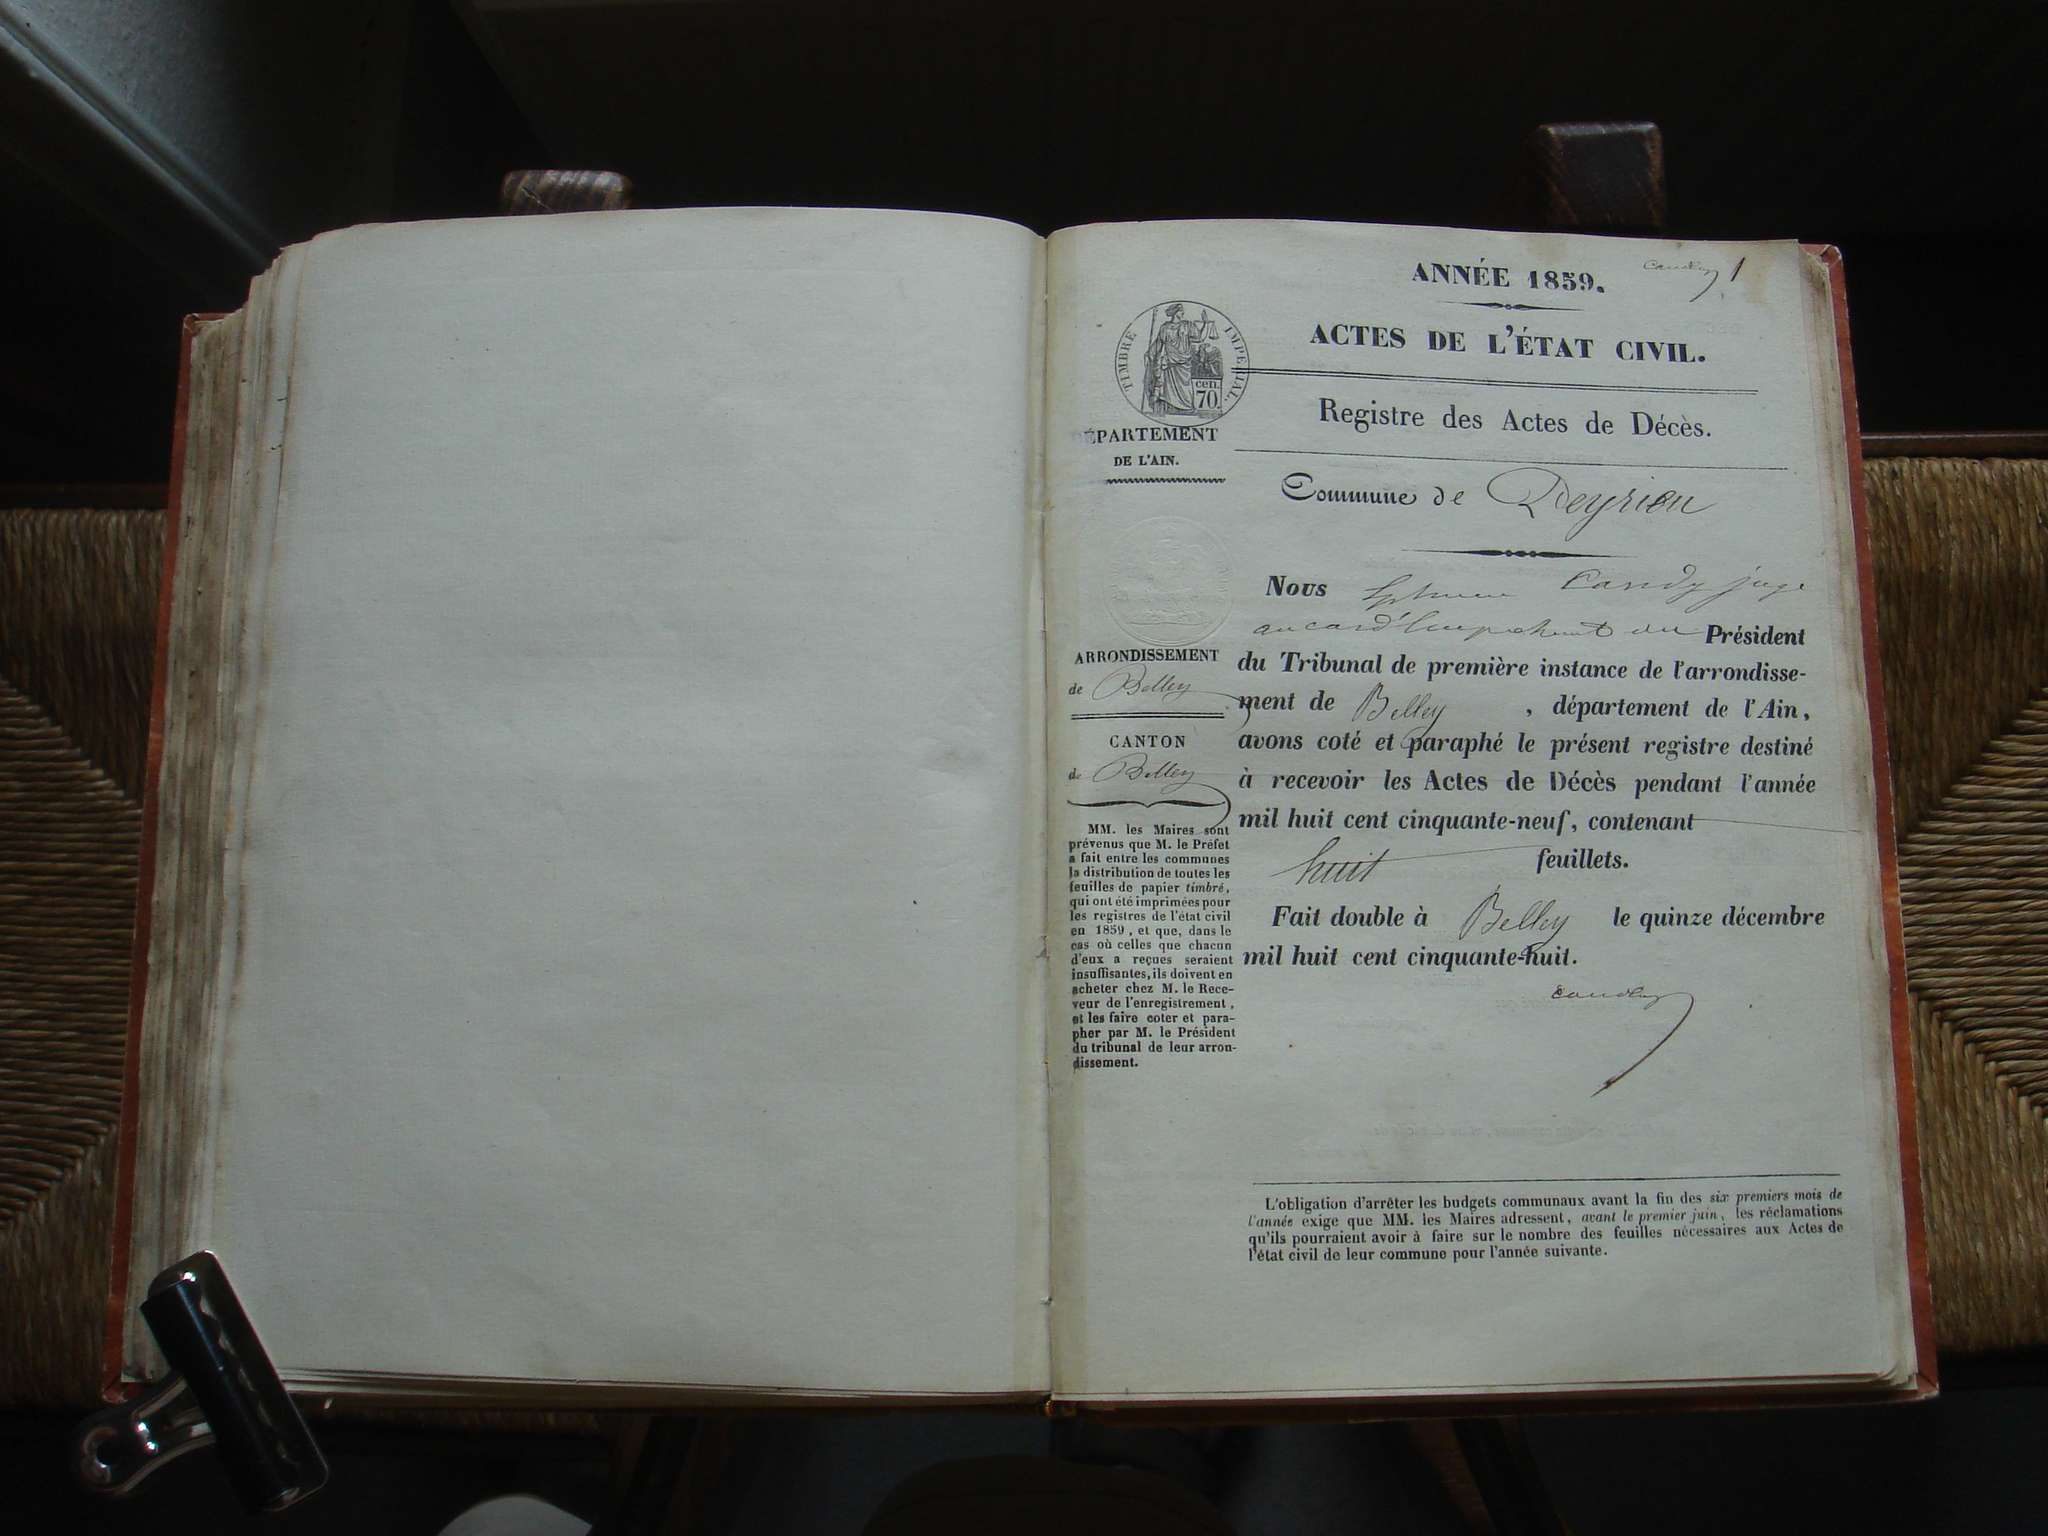 ANNÉE 1859.
1
ACTES DE L'ÉTAT CIVIL.
TIMBRE IMPÉRIAL.
cen.
70.
Registre des Actes de Décès.
ÉPARTEMENT
DE L'AIN.
Commune de Peyrieu
Nous Candy juge
au cas d'empêchement du Président
du Tribunal de première instance de l'arrondisse-
ment de Belley, département de l'Ain,
avons coté et paraphé le présent registre destiné
à recevoir les Actes de Décès pendant l'année
mil huit cent cinquante-neuf, contenant
huit feuillets.
Fait double à Belley le quinze décembre
mil huit cent cinquante-huit.
ARRONDISSEMENT
de Belley
CANTON
de Belley
MM. les Maires sont
prévenus que M. le Préfet
a fait entre les communes
la distribution de toutes les
feuilles de papier timbré,
qui ont été imprimées pour
les registres de l'état civil
en 1859, et que, dans le
cas où celles que chacun
d'eux a reçues seraient
insuffisantes, ils doivent en
acheter chez M. le Rece-
veur de l'enregistrement,
et les faire coter et para-
pher par M. le Président
du tribunal de leur arron-
dissement.
L'obligation d'arrêter les budgets communaux avant la fin des six premiers mois de
l'année exige que MM. les Maires adressent, avant le premier juin, les réclamations
qu'ils pourraient avoir à faire sur le nombre des feuilles nécessaires aux Actes de
l'état civil de leur commune pour l'année suivante.